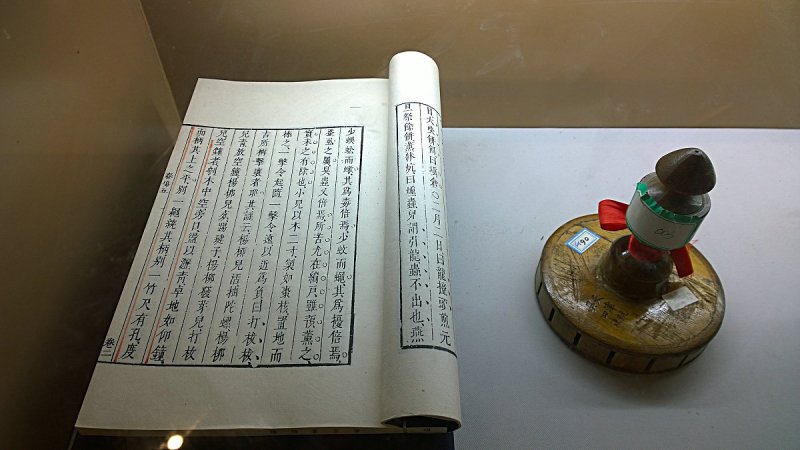 曰填倉○二月二日曰龍擡頭煎元
旦祭餘餅熏牀炕曰熏蟲兒謂引龍蟲不出也燕
少蜈蚣而蠍其爲毒倍焉少蚊而蠅其爲擾倍焉
蚤虱之屬臭蟲又倍焉所苦尤在編戶雖預熏之
實未之有除也小兒以木二寸製如棗核置地而
棒之一擊令起隨一擊令遠以近爲負曰打柭柭
古所稱擊壤者耶其謠云楊柳兒活抽陀螺楊柳
兒青放空鐘楊柳兒死踢毽子楊柳發芽兒打柭
兒空鐘者刳木中空旁口盪以瀝青卓地如仰鐘
而柄其上之平別一繩繞其柄別一竹尺有孔度
卷二